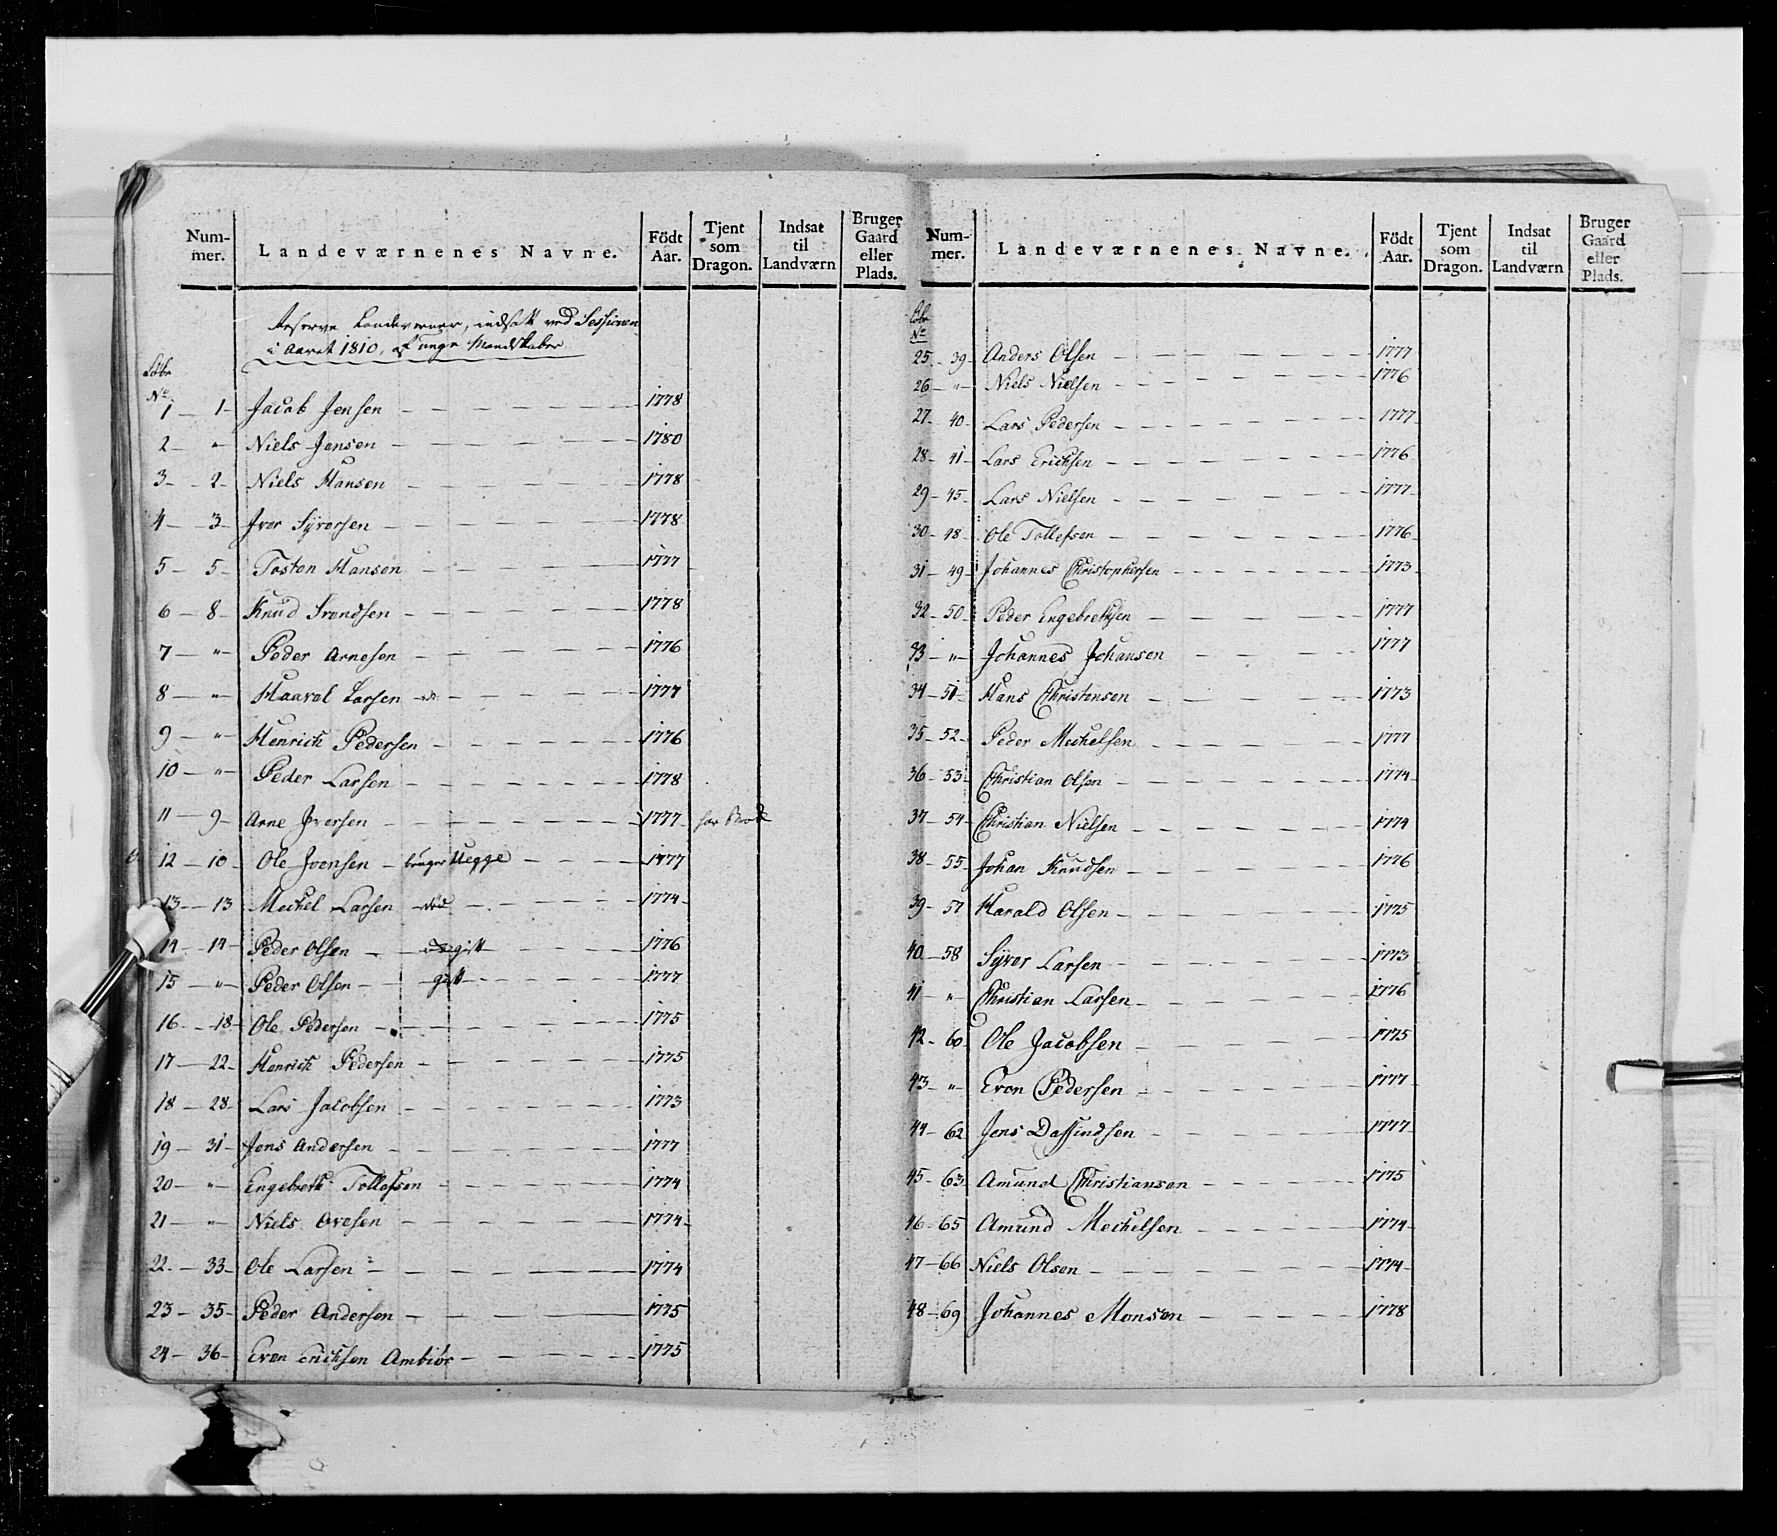 Num-mer. Landeværnenes Navne. Födt Aar. Tjent som Dragon. Indsat til Landværn Bruger Gaard eller Plads.
Reserve Landeværner, indsatt ved Sessionen
i Aaret 1810, unge Mandskaber
Löbe
No.
1 — 1 Jacob Jensen 1778
2 — " Niels Jensen 1780
3 — 2 Niels Hansen 1778
4 — 3 Iver Syversen 1778
5 — 5 Tosten Hansen 1777
6 — 8 Knud Svendsen 1778
7 — " Peder Arnesen 1776
8 — " Haavel Larsen 1777
9 — " Henrich Pedersen 1776
10 — " Peder Larsen 1778
11 — 9 Arne Iversen 1777
12 — 10 Ole Ivensen bruger Uegge 1777
13 — 13 Mechel Larsen död 1774
14 — 14 Peder Olsen 1776
15 — " Peder Olsen gift 1777
16 — 18 Ole Pedersen 1775
17 — 22 Henrich Pedersen 1775
18 — 28 Lars Jacobsen 1773
19 — 31 Jens Andersen 1777
20 — " Engebreth Tollefsen 1774
21 — " Niels Ovesen 1774
22 — 33 Ole Larsen 1774
23 — 35 Peder Andersen 1775
24 — 36 Even Erichsen Ambiör 1775
Num-mer. Landeværnenes Navne. Födt Aar. Tjent som Dragon. Indsat til Landværn Bruger Gaard eller Plads.
Löbe
No
25 — 39 Anders Olsen 1777
26 — " Niels Nielsen 1776
27 — 40 Lars Pedersen 1777
28 — 41 Lars Erichsen 1776
29 — 45 Lars Nielsen 1777
30 — 48 Ole Tollefsen 1776
31 — 49 Johannes Christophersen 1773
32 — 50 Peder Engebrethsen 1777
33 — " Johannes Johansen 1777
34 — 51 Hans Christensen 1773
35 — 52 Peder Mechelsen 1777
36 — 53 Christian Olsen 1774
37 — 54 Christian Nielsen 1774
38 — 55 Johan Knudsen 1776
39 — 57 Harald Olsen 1775
40 — 58 Syver Larsen 1773
41 — " Christian Larsen 1776
42 — 60 Ole Jacobsen 1775
43 — " Even Pedersen 1777
44 — 62 Jens Dassindsen 1777
45 — 63 Amund Christiansen 1775
46 — 65 Amund Mechelsen 1774
47 — 66 Niels Olsen 1774
48 — 69 Johannes Monsen 1778